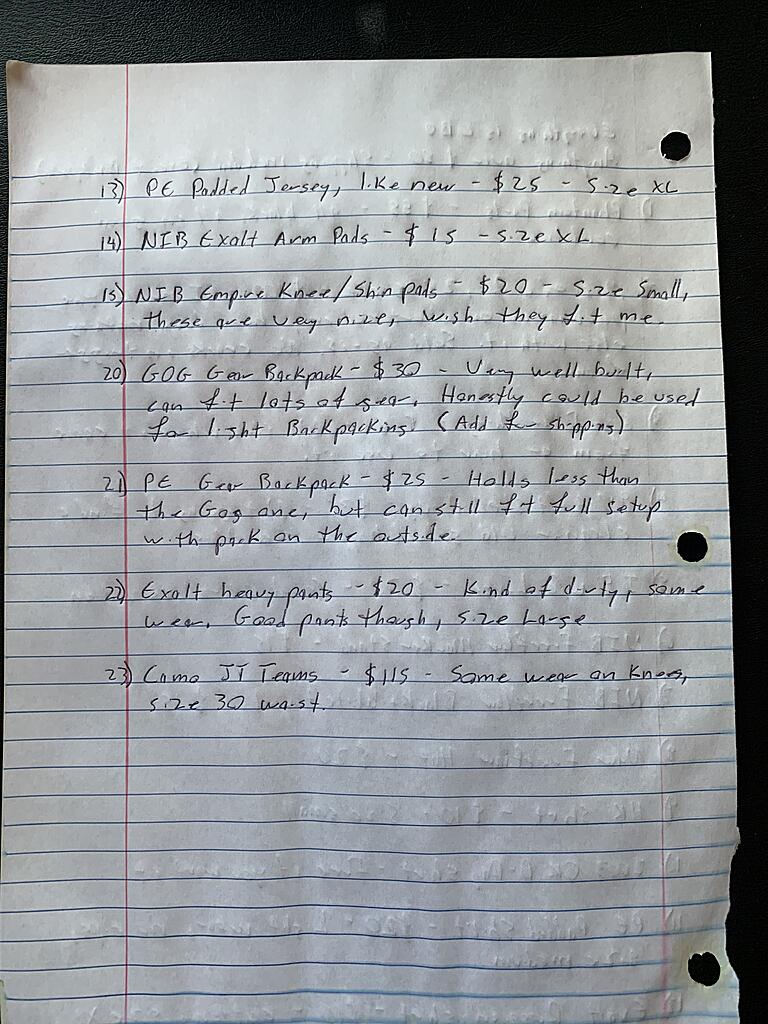 13) PE Padded Jersey, like new - $25 - Size XL
14) NIB Exalt Arm Pads - $15 - Size XL
15) NIB Empire Knee/Shin pads - $20 - Size Small,
these are very nize, wish they fit me.
20) GOG Gear Backpack - $30 - Very well built,
can fit lots of gear. Honestly could be used
for light Backpacking. (Add for shipping)
21) PE Gear Backpack - $25 - Holds less than
the Gog one, but can still fit full setup
with pack on the outside.
22) Exalt heavy pants - $20 - Kind of dirty, some
wear, Good pants though, size Large
23) Camo JT Teams - $115 - Some wear on Knees,
size 30 waist.